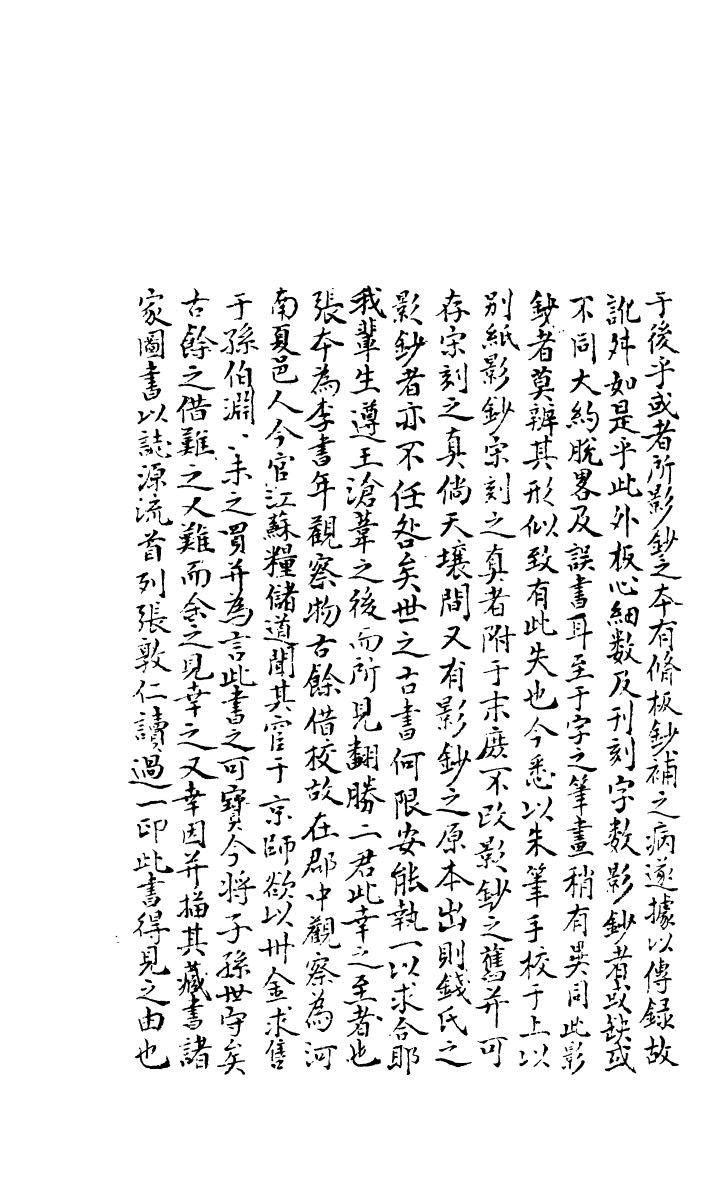 于後乎或者所影鈔之本有脩板鈔補之病遂據以傳録故
訛舛如是乎此外板心細數及刊刻字數影鈔者或缺或
不同大約脫畧及誤書耳至于字之筆畫稍有異同此影
鈔者莫辨其形似致有此失也今悉以朱筆手校于上以
別紙影鈔宋刻之真者附于末庶不改影鈔之舊并可
存宋刻之真倘天壤間又有影鈔之原本出則錢氏之
影鈔者亦不任咎矣世之古書何限安能執一以求合耶
我輩生遵王滄葦之後而所見翻勝二君此幸之至者也
張本為李書年觀察物古餘借校故在郡中觀察為河
南夏邑人今官江蘇糧儲道聞其宦于京師欲以卅金求售
于孫伯淵〻未之買并為言此書之可寶今將子孫世守矣
古餘之借難之又難而余之見幸之又幸因并描其藏書諸
家圖書以誌源流首列張敦仁讀過一印此書得見之由也